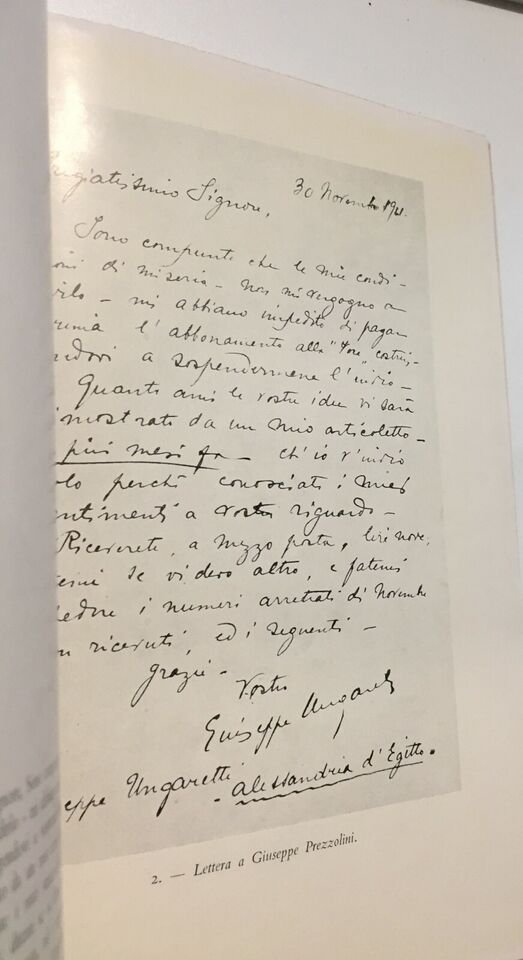 30 Novembre 1911.
Pregiatissimo Signore,
Sono compunto che le mie condi-
zioni di miseria - non mi vergogno a
dirlo - mi abbiano impedito di pagar
prima l'abbonamento alla "Voce, costrin-
gendovi a sospendermene l'invio -
Quanto ami le vostre idee vi sarà
dimostrato da un mio articoletto -
di più mesi fa - ch'io v'invio
solo perchè conosciate i miei
sentimenti a vostro riguardo -
Riceverete, a mezzo posta, lire nove,
se vi devo altro, e fatemi
i numeri arretrati di Novembre
non ricevuti, ed i seguenti -
grazie -
Vostro
Giuseppe Ungaretti
Giuseppe Ungaretti
- Alessandria d'Egitto.
2. — Lettera a Giuseppe Prezzolini.